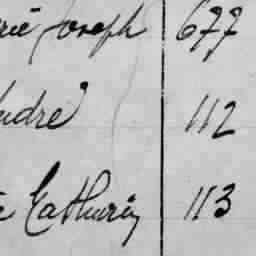 rie Joseph 677
ndré 112
Cathurin 113